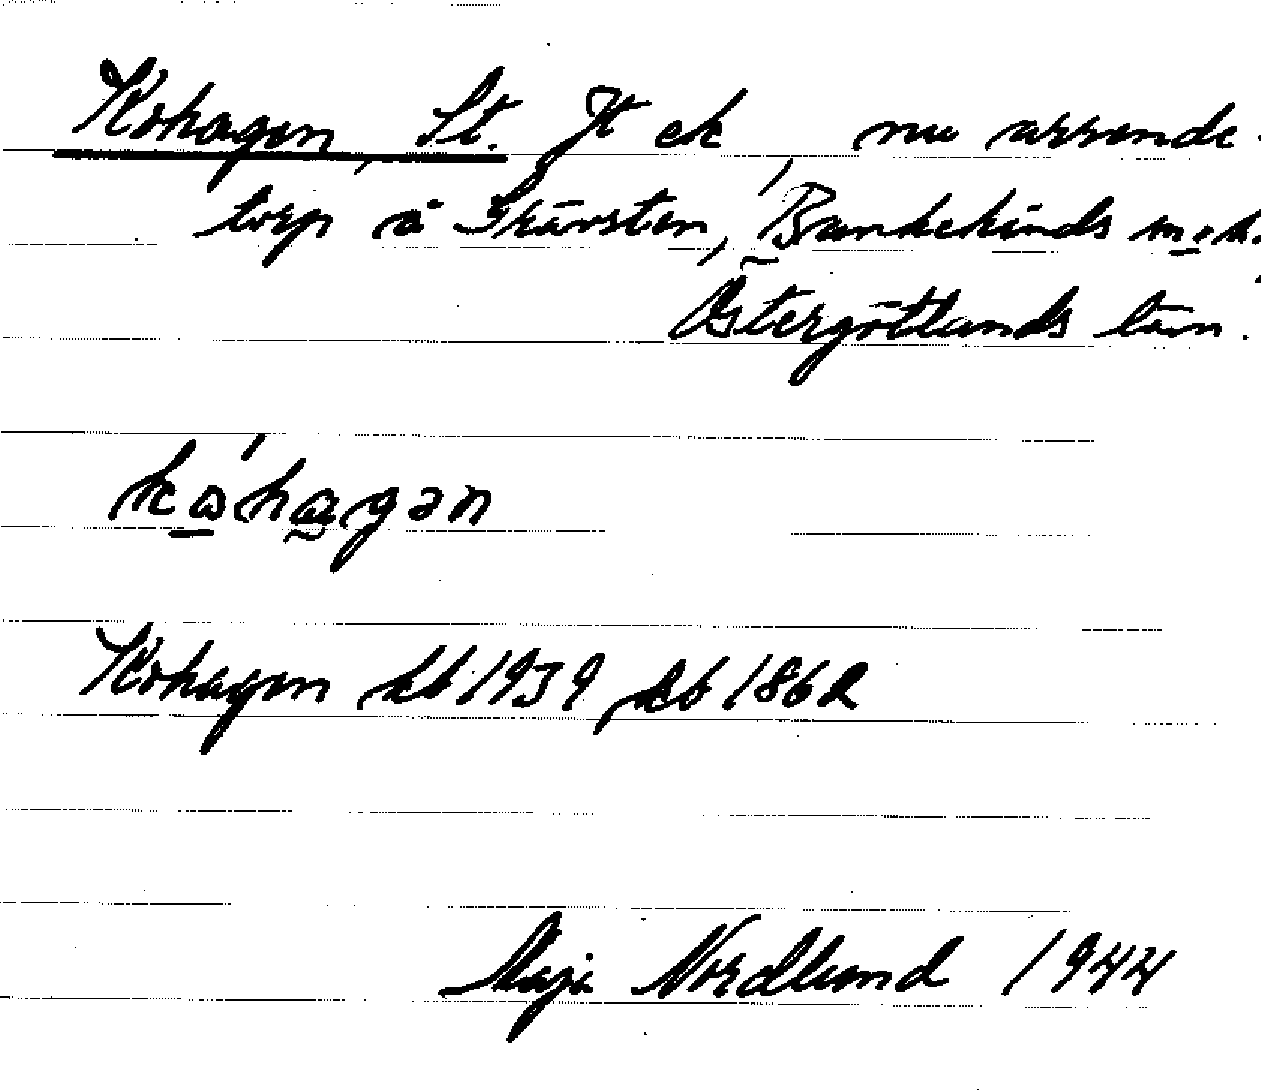 Kohagen, St. Jt ek, nu arrende-
torp å Grävsten, Bankekinds
Östergötlands län.
Kohagen kb 1939, kb 1862
Maja Nordlund 1944